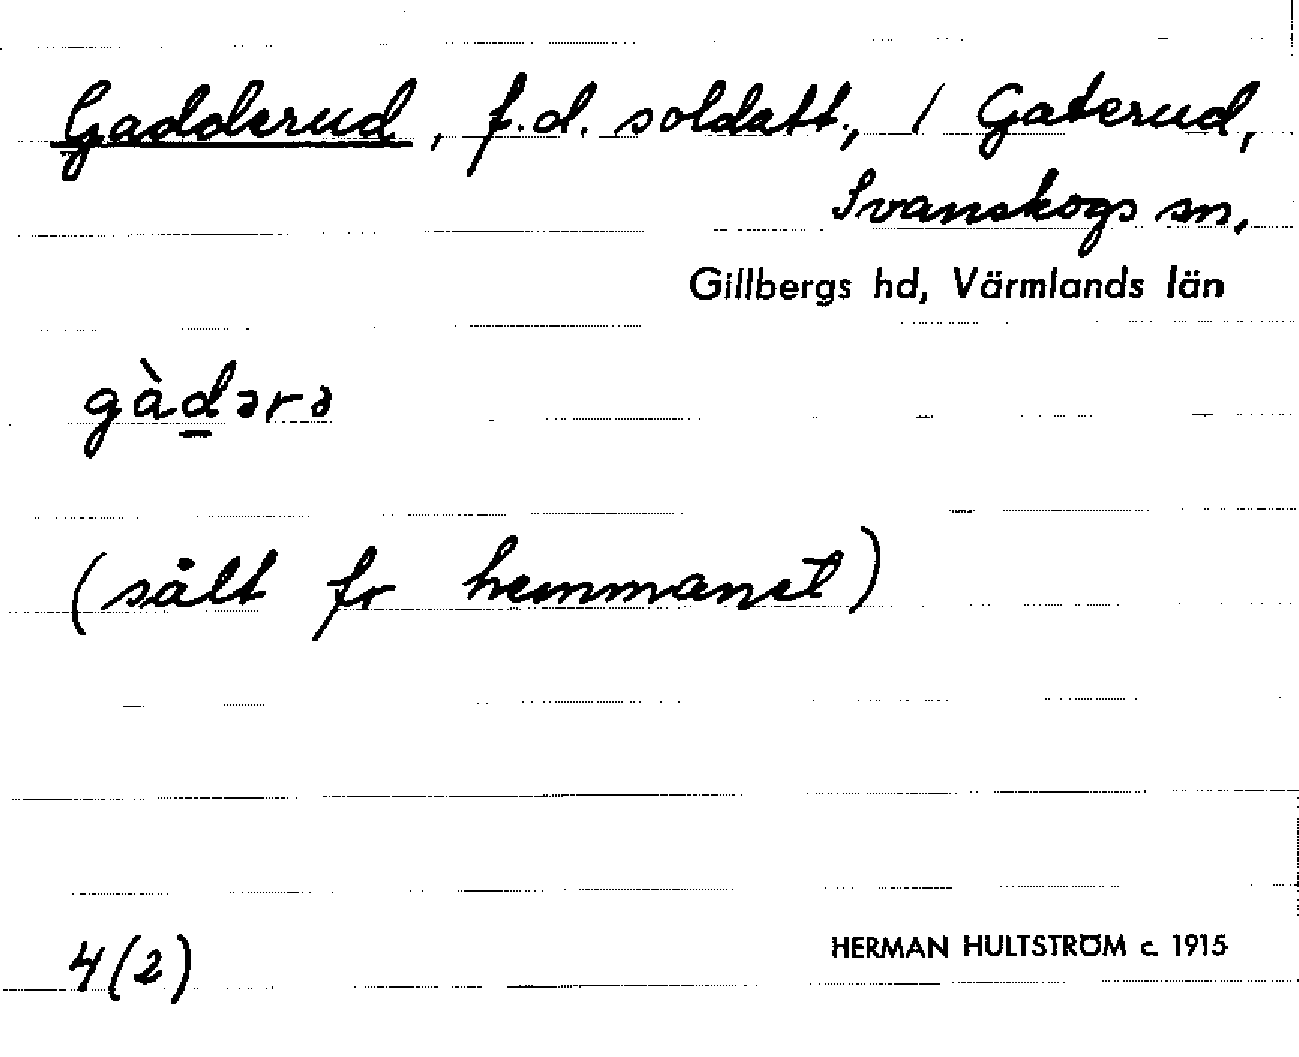 Gadderud, f.d. soldatt., / Gaterud,
Svanskogs sn,
Gillbergs hd, Värmlands län
gàd̲ərə
(sålt fr hemmanet)
4(2)
HERMAN HULTSTRÖM c. 1915